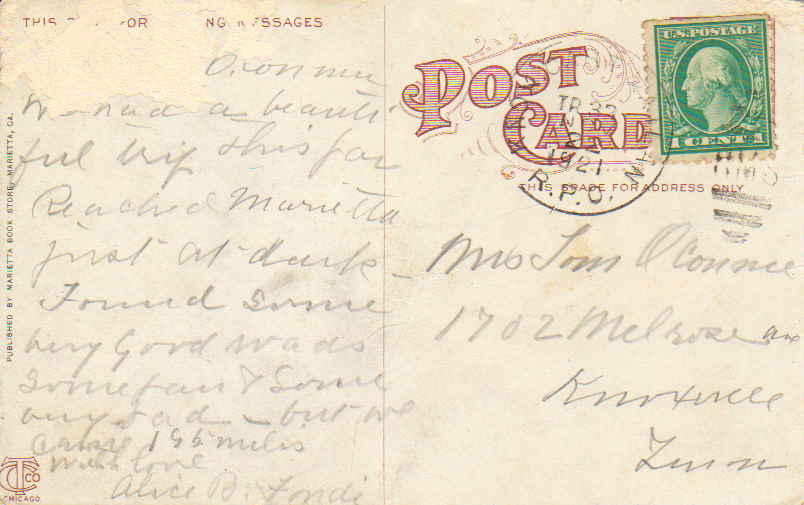 THIS FOR NG MESSAGES
We had a beauti
ful trip this far
Reached Marietta
just at dark
Found some
very Good roads
some fair & some
very bad - but we
came 195 miles
with love
Alice B.
PUBLISHED BY MARIETTA BOOK STORE, MARIETTA, GA.
CT CO
CHICAGO
POST
CARD
U.S. POSTAGE
1 CENT 1
TR 32
1921
R.P.O.
THIS SPACE FOR ADDRESS ONLY
Mrs Tom O'Connor
1702 Melrose ave
Knoxville
Tenn